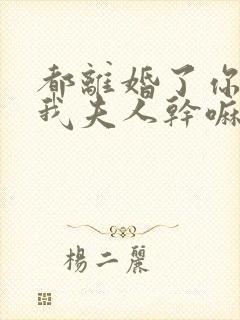 都離婚了你
我夫人幹嘛
楊二麗